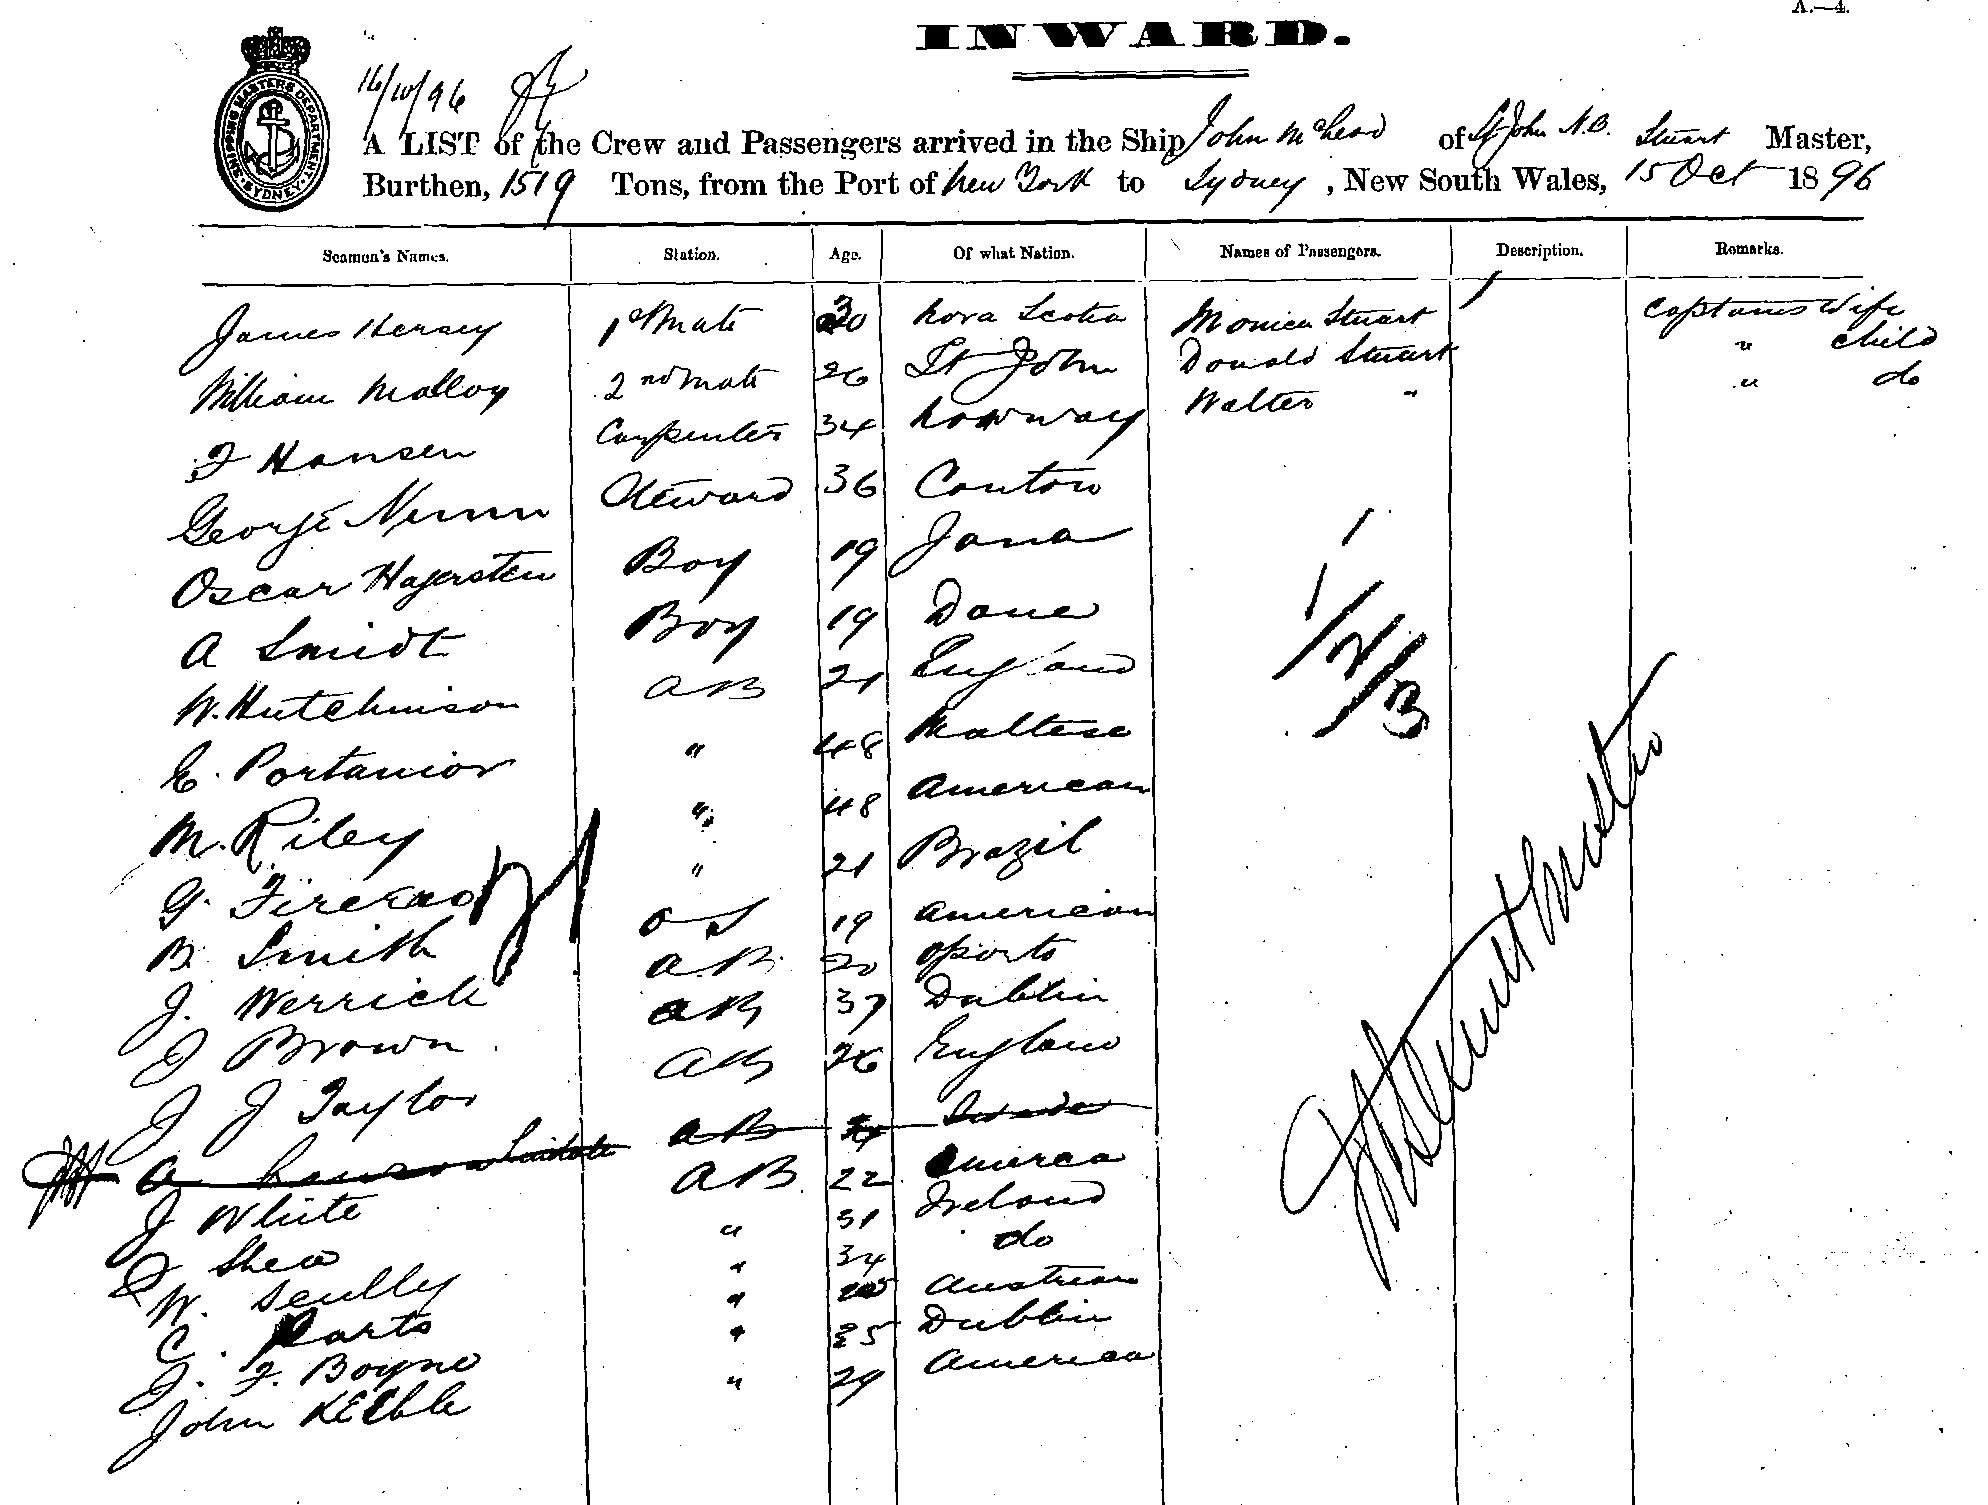 A.—4.
INWARD.
16/10/96
SHIPPING MASTERS DEPARTMENT. SYDNEY
A LIST of the Crew and Passengers arrived in the Ship John McLeod of St John N.B. Stuart Master,
Burthen, 1519 Tons, from the Port of New York to Sydney, New South Wales, 15 Oct 1896
Seamen's Names. Station. Age. Of what Nation. Names of Passengers. Description. Remarks.
James Hersey 1st Mate 30 Nova Scotia Monica Stuart Captains Wife
William Malloy 2nd Mate 26 St John Donald Stuart " child
F Hansen Carpenter 34 Norway Walter " " do
George Steward 36 Canton
Oscar Hagersten Boy 19
A Smidt Boy 19 Dane
W. Hutchinson AB 21 England
E. Portanior " 48 Maltese
M. Riley " 48 American
G. " 21 Brazil
B. Smith OS 19 American
J. Werrick AB 20 Oporto
J Brown AB 37 Dublin
J J Taylor AB 26 England
A AB
J White AB 22 America
J Shea " 31 Ireland
W. Scully " 34 do
C. Parts " Austrian
J. F. Boyne " 25 Dublin
John Keeble " 29 America
1
1
1/2
1/3